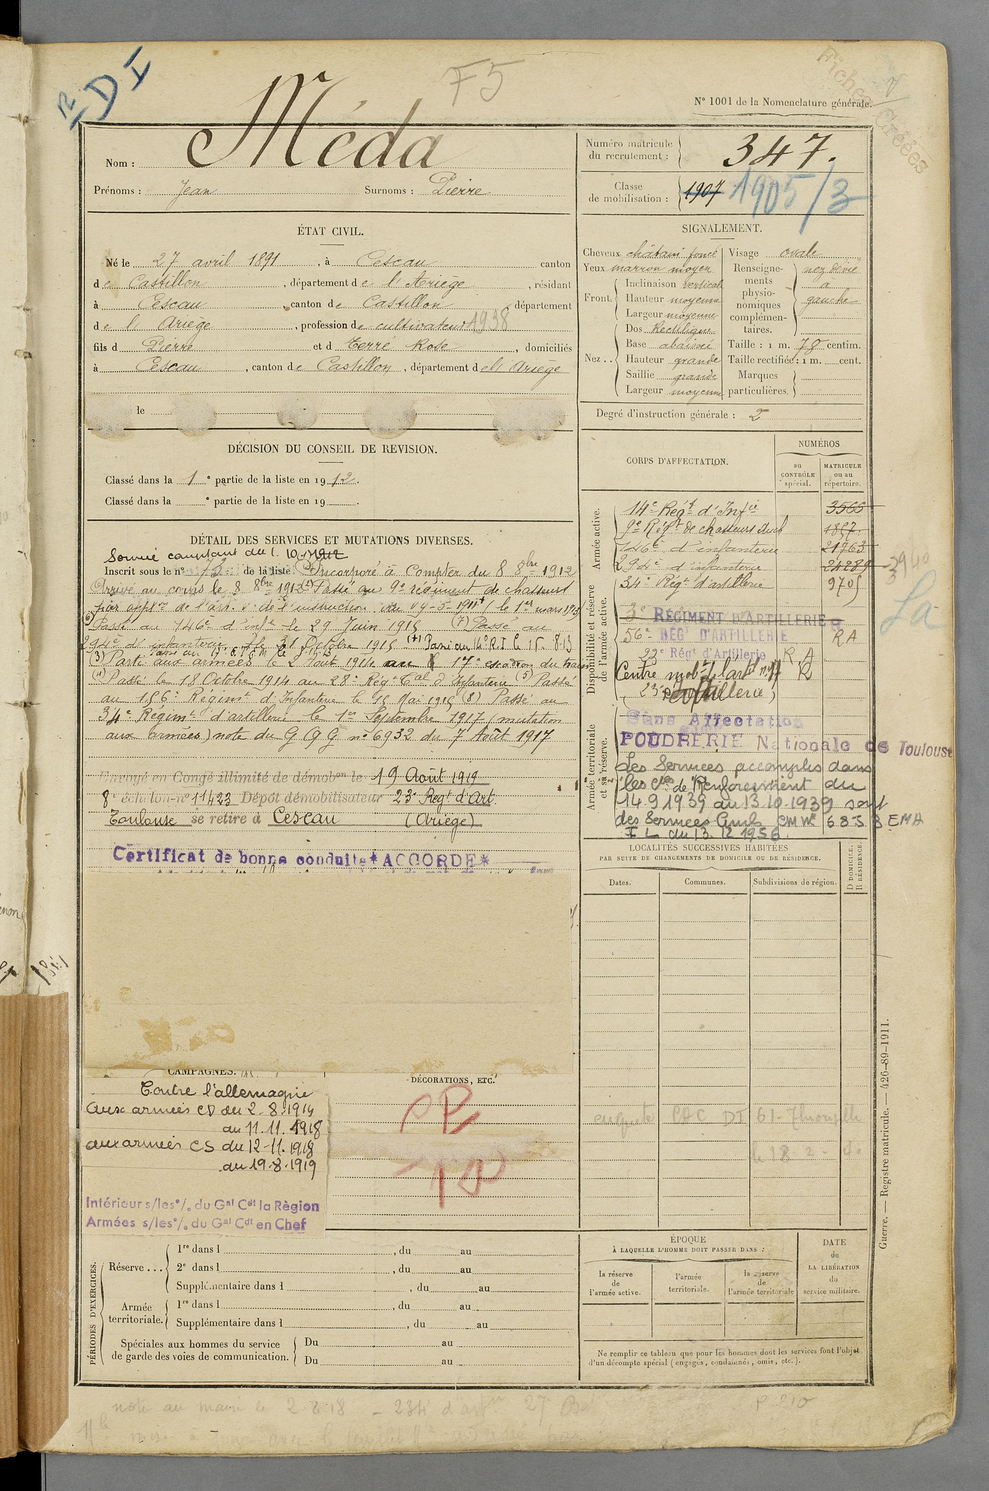 F5
N° 1001 de la Nomenclature générale.
Fiches Créées
Nom : Méda
Prénoms : Jean Surnoms : Pierre
Numéro matricule du recrutement : 347.
Classe de mobilisation : 1907 1905/3
ÉTAT CIVIL.
Né le 27 avril 1891, à Cescau canton
de Castillon, département de l'Ariège, résidant
à Cescau, canton de Castillon, département
de l'Ariège, profession de cultivateur 1938
fils d Pierre et d Terré Rose, domiciliés
à Cescau, canton de Castillon, département de l'Ariège
le
SIGNALEMENT.
Cheveux châtain foncé
Yeux marron moyen
Front. Inclinaison vertical
Hauteur moyenne
Largeur moyenne
Nez . . Dos Rectiligne
Base abaissé
Hauteur grande
Saillie grande
Largeur moyenne
Visage ovale
Renseignements physionomiques complémentaires. nez dévié à gauche
Taille : 1 m. 78 centim.
Taille rectifiée : 1 m. cent.
Marques particulières.
Degré d'instruction générale : 2
DÉCISION DU CONSEIL DE REVISION.
Classé dans la 1e partie de la liste en 1912.
Classé dans la e partie de la liste en 19 .
CORPS D'AFFECTATION.
NUMÉROS
au CONTRÔLE spécial.
MATRICULE ou au répertoire.
Armée active.
14e Régt d'Infie 3565
9e Régt de chasseurs 1857
146e d'infanterie 21963
294e d'infanterie 24289
34e Régt d'artillerie 9705
Disponibilité et réserve de l'armée active.
3e RÉGIMENT D'ARTILLERIE
56e RÉGt D'ARTILLERIE R A
23e Régt d'Artillerie R A
Centre mobr d'artie
Artillerie
Armée territoriale et sa réserve.
Sans Affectation
POUDRERIE Nationale de Toulouse
Les Services accomplis dans
les Cies de Renforcement du
14.9.1939 au 13.10.1939 sont
des Services Civils CM N° 6835 EMA
du 13.12.1956.
DÉTAIL DES SERVICES ET MUTATIONS DIVERSES.
Service comptant du 1.10.1912
Inscrit sous le n° de la liste Incorporé à Compter du 8 8bre 1912
Arrivé au corps le 8 8bre 1912 Passé au 9e régiment de chasseurs
Passé au 146e d'infie le 29 Juin 1915 (7) Passé au
294e d'infanterie le 31 Octobre 1915
(3) Parti aux armées le 2 Août 1914 au 17e escadron du train
(4) Passé le 18 Octobre 1914 au 28e Régt Cal d'Infanterie (5) Passé
au 156e Régimt d'Infanterie le 15 Mai 1915 (8) Passé au
34e Régimt d'artillerie le 1er Septembre 1917 (mutation
aux armées) note du G Q G n° 6932 du 7 Août 1917
Envoyé en Congé illimité de démobon le 19 Août 1919
8e échelon-n° 11423 Dépôt démobilisateur 23e Régt d'Art.
Toulouse se retire à Cescau (Ariège)
Certificat de bonne conduite * ACCORDÉ *
LOCALITÉS SUCCESSIVES HABITÉES
PAR SUITE DE CHANGEMENTS DE DOMICILE OU DE RÉSIDENCE.
Dates.
Communes.
Subdivisions de région.
D DOMICILE. R RÉSIDENCE.
CAMPAGNES.
Contre l'allemagne
aux armées CD du 2.8.1914
au 11.11.1918
aux armées CS du 12-11.1918
au 19.8.1919
Intérieur s/les °/. du Gal Cdt la Région
Armées s/les °/. du Gal Cdt en Chef
DÉCORATIONS, ETC.
Guerre. — Registre matricule. — 426-89-1911.
PÉRIODES D'EXERCICES.
Réserve . . . 1re dans l , du au
2e dans l , du au
Supplémentaire dans l , du au
Armée territoriale. 1re dans l , du au
Supplémentaire dans l , du au
Spéciales aux hommes du service de garde des voies de communication. Du au
Du au
ÉPOQUE
À LAQUELLE L'HOMME DOIT PASSER DANS :
la réserve de l'armée active.
l'armée territoriale.
la réserve de l'armée territoriale
DATE de LA LIBÉRATION du service militaire.
Ne remplir ce tableau que pour les hommes dont les services font l'objet
d'un décompte spécial (engagés, condamnés, omis, etc.).